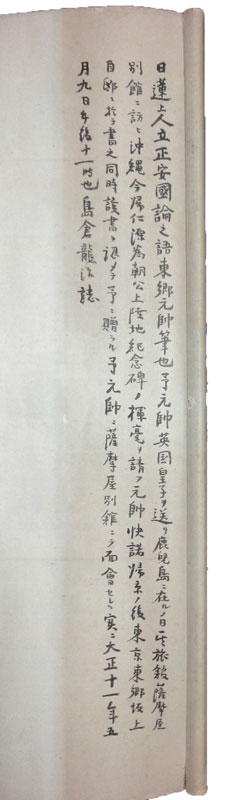 日蓮上人立正安國論之語東郷元帥筆也予元帥英国皇子ヲ送リ鹿児島ニ在ルノ日其旅館薩摩屋
別館ニ訪ヒ沖縄今帰仁源為朝公上陸地紀念碑ノ揮毫ヲ請フ元帥快諾帰京ノ後東京東郷坂上
自邸ニ於テ書之同時護書ヲ認メテ予ニ贈ラル予元帥ニ薩摩屋別館ニテ面會セシハ実ニ大正十一年五
月九日午後十一時也 島倉龍治誌